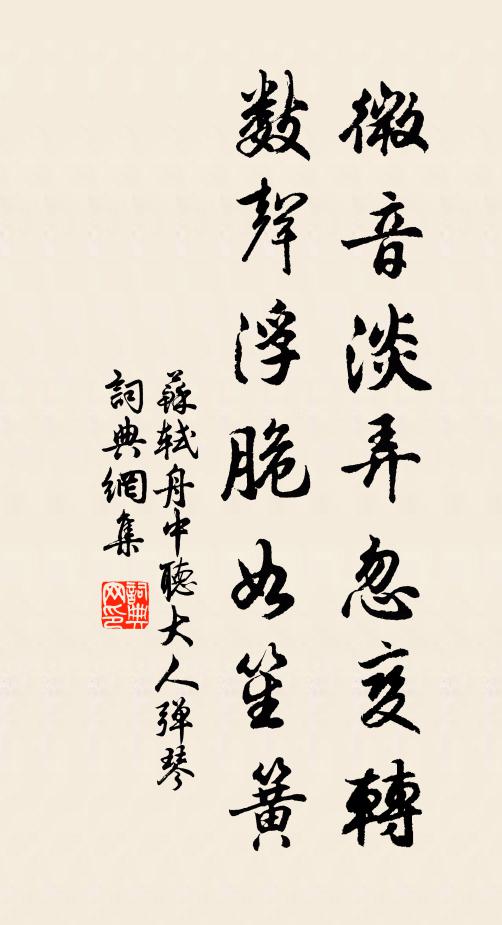 微音淡弄忽变轉
數聲浮脆如笙簧
蘇轼舟中聽大人弹琴
詞典網集
詞典网印